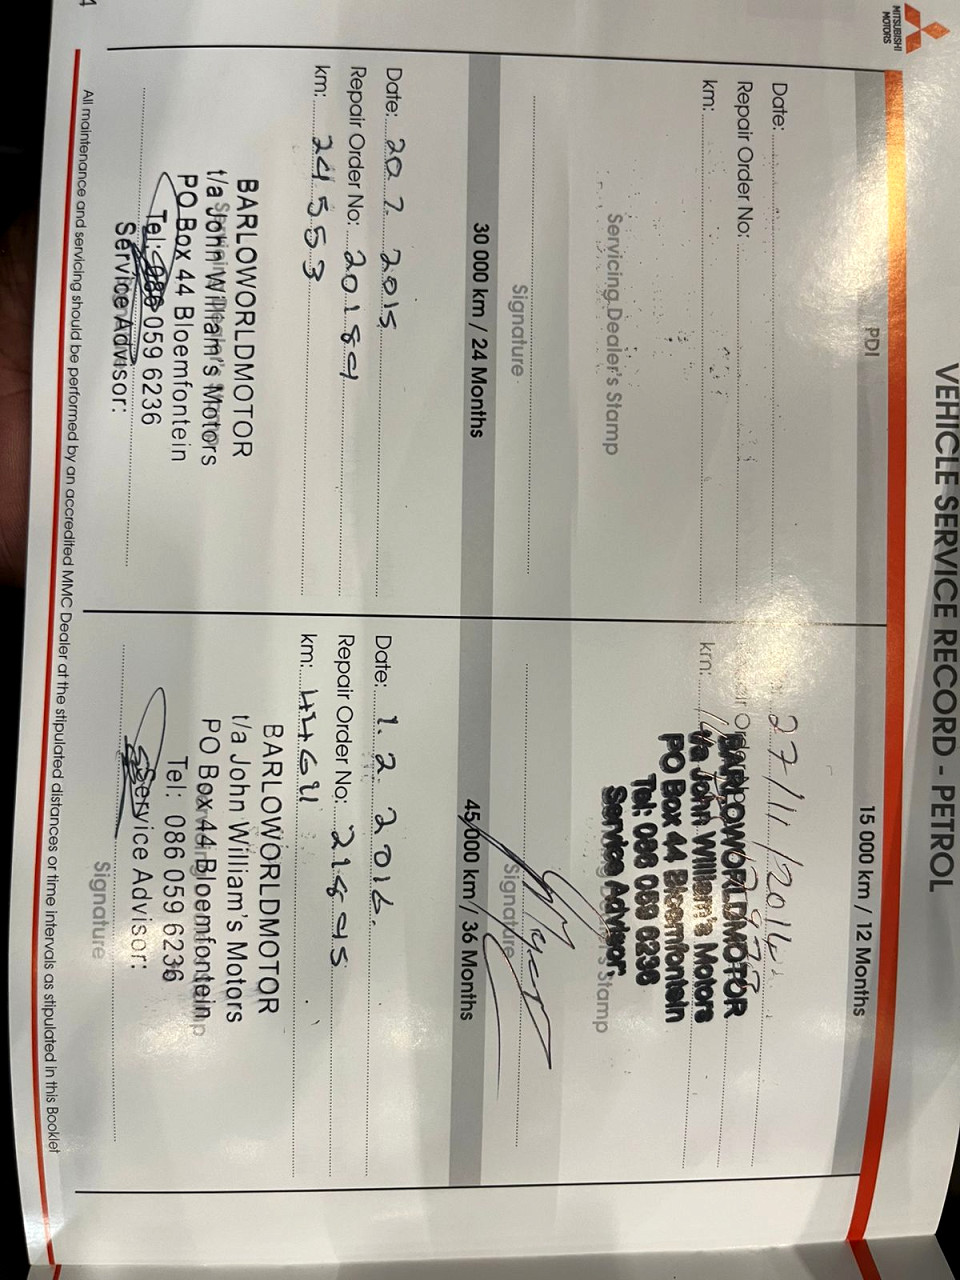 MITSUBISHI
MOTORS
VEHICLE SERVICE RECORD - PETROL
PDI
Date:
Repair Order No:
km:
Servicing Dealer's Stamp
Signature
15 000 km / 12 Months
27/11/2014
km:
BARLOWORLDMOTOR
t/a John William's Motors
PO Box 44 Bloemfontein
Tel: 086 059 6236
Service Advisor:
Stamp
Signature
30 000 km / 24 Months
Date: 20 7 2015
Repair Order No: 20189
km: 24553
BARLOWORLDMOTOR
t/a John William's Motors
PO Box 44 Bloemfontein
Tel: 086 059 6236
Service Advisor:
45 000 km / 36 Months
Date: 1. 2. 2016.
Repair Order No: 21895
km:
BARLOWORLDMOTOR
t/a John William's Motors
PO Box 44 Bloemfontein
Tel: 086 059 6236
Service Advisor:
Signature
All maintenance and servicing should be performed by an accredited MMC Dealer at the stipulated distances or time intervals as stipulated in this Booklet
4